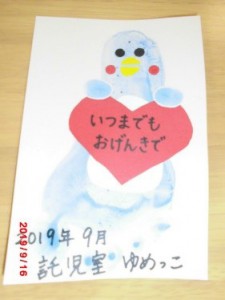 いつまでも
おげんきで
2019年9月
託児室 ゆめっこ
2019/9/16